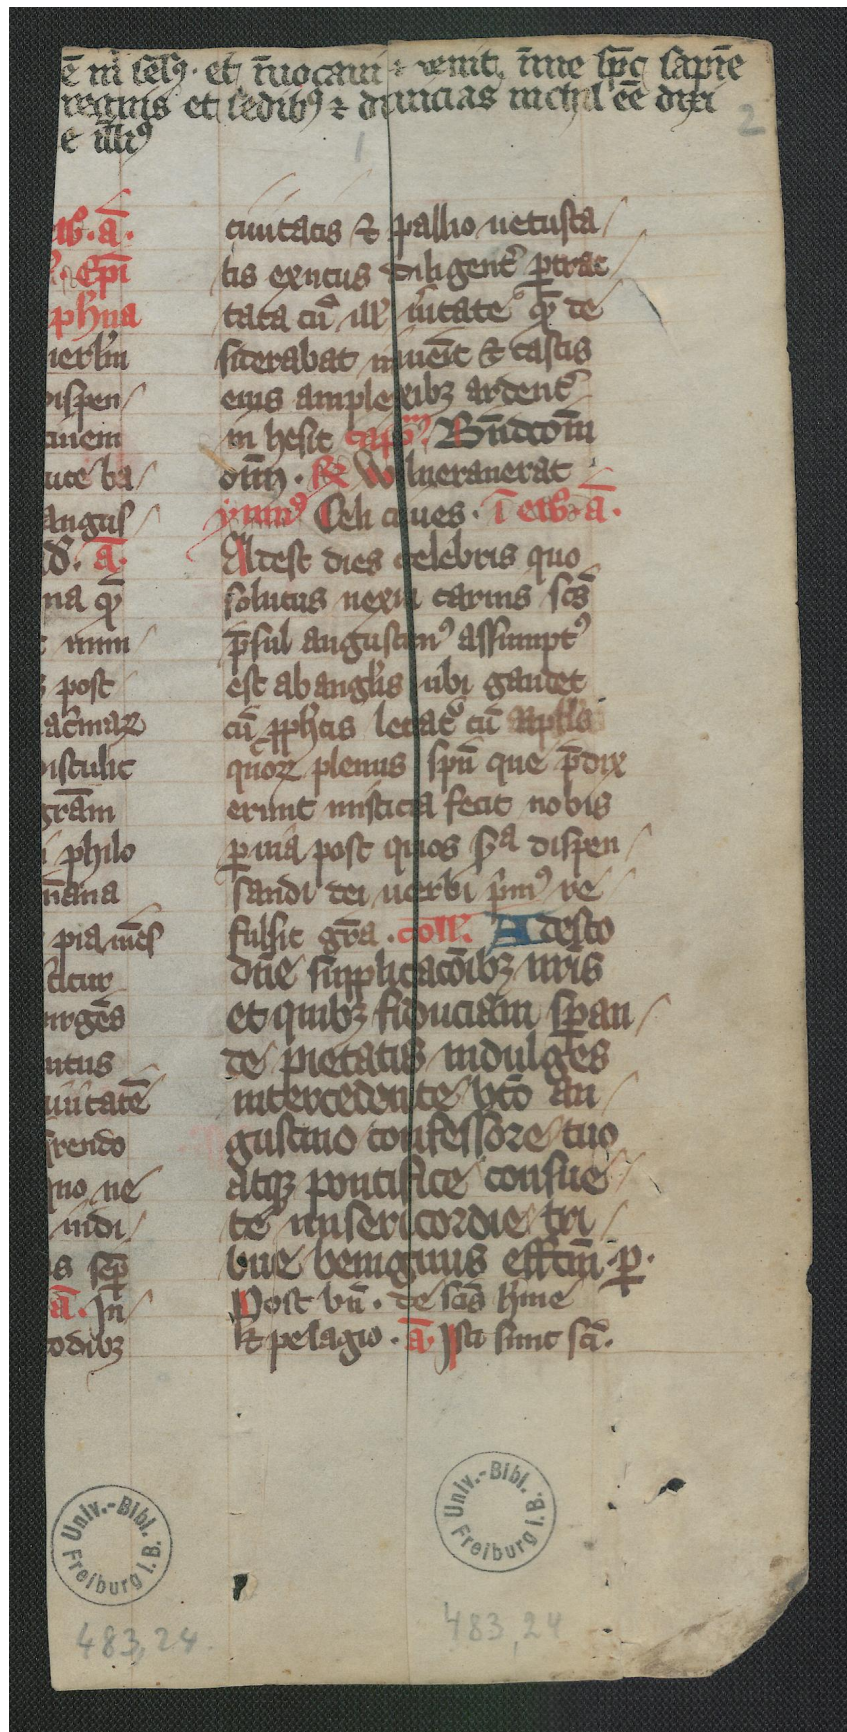 ē m̄ sēsꝰ · et īuocaui ⁊ venit in me sp̄c sapīe
regnis et sedibꝫ ⁊ diuicias nichil eē dixi
e illiꝰ
1
2
ā.
Ep̄i
phīa
ierl̄m
ispen
ciuem
uce ba
Angus
ā.
na qͣ
num
post
grām
philo
pia mēs
icitur
urgēs
ntus
uitatē
rendo
no ne
indi
s semꝑ
ā. In
odibꝫ
ciuitatis ⁊ pallio uetusta
tis exutus diligent᷑ ꝑtrac
tata cū ill᷑ u᷑itate qͣ de
siderabat inuēit ⁊ castis
eius amplexibꝫ ardent᷑
in hesit cap᷑. Bn̄dcōm
dn̄m. R̄ Wlnerauerat
ymnꝰ Celi ciues. ī ew᷑. ā.
Adest dies celebris quo
solutus nexu carnis sc̄s
p̄sul augustinꝰ assumptꝰ
est ab angl᷑is ubi gaudet
cū ꝓph᷑tis letat᷑ cū apl᷑is
quoꝝ plenus sp̄u que p̄dix
erunt mistica fecit nobis
ꝑuia post quos sͣ dispen
sandi dei uerbi p᷑mꝰ re
fulsit gr̄a. coll᷑. Adesto
dn̄e supplicacōibꝫ nr̄is
et quibꝫ fiduciam sꝑan
de pietatis indulges
intercedente bt̄o au
gustino confessore tuo
atqꝫ pontifice consue
te misericordie tri
bue benignus effc̄m. ꝑ.
Post bn̄. de sc̄is h᷑me
te ⁊ pelagio. ā. Isti sunt sc̄i.
Univ.-Bibl. Freiburg i. B.
Univ.-Bibl. Freiburg i. B.
483,24.
483,24